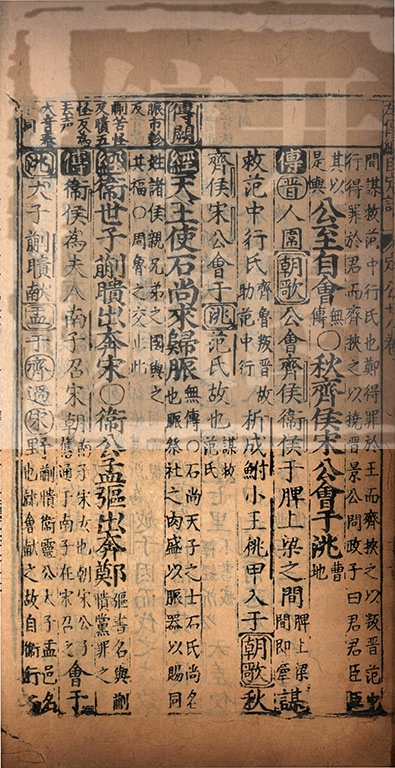 間謀救范中行氏也鄭得罪於王而齊挾之以叛晉范中
行得罪於君而齊挾之以撓晉景公問政子曰君君臣臣
其以
是與
公至自會
無
傳
○秋齊侯宋公會于洮
曹
地
傳晉人圍朝歌公會齊侯衞侯于脾上梁之間
脾上梁
間即牽
謀
救范中行氏
齊魯叛晉故
助范中行
析成鮒小王桃甲入于朝歌秋
齊侯宋公會于洮范氏故也
謀救
范氏
傳闕
經天王使石尚來歸脤
無傳○石尚天子之士石氏尚名
也脤祭社之肉盛以脤器以賜同
脤市軫
反
姓諸侯親兄弟之國與之
共福○周魯之交止此
蒯苦怪
反聵五
經衞世子蒯聵出奔宋○衞公孟彄出奔鄭
彄名與蒯
聵黨罪之
怪反為
去聲
傳衞侯為夫人南子召宋朝
南子宋女也朝宋公子
舊通于南子在宋召之
會于
大音泰
下同
洮大子蒯聵献盂于齊過宋野
蒯聵衞靈公大子盂邑名
也就會献之故自衞行